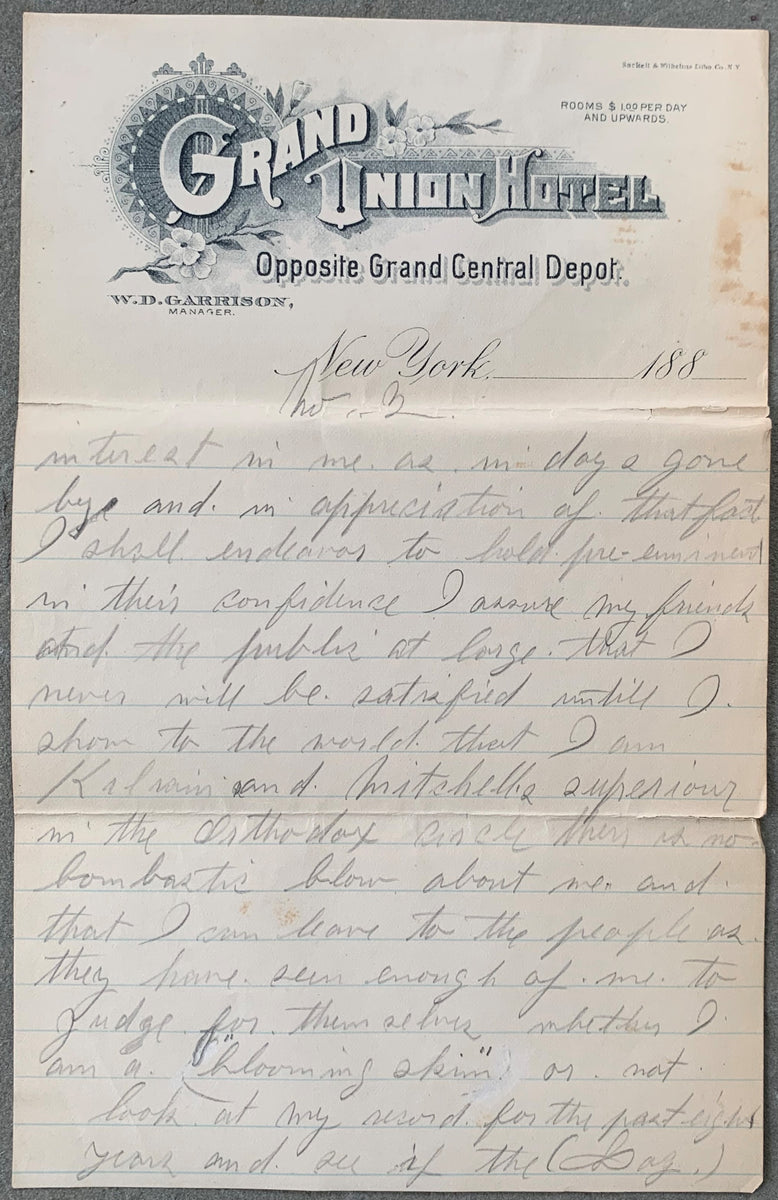 Sackett & Wilhelms Litho Co. N.Y.
ROOMS $1.00 PER DAY
AND UPWARDS.
GRAND
UNION HOTEL
Opposite Grand Central Depot.
W.D. GARRISON,
MANAGER.
New York, 188
no. 2.
interest in me. as. in days gone
bye and. in appreciation of. that fact
I shall endeavor to hold. pre-eminent
in their confidence I assure my friends
and. the public at large. that I
never will be. satisfied untill I.
show to the world. that I am
Kilrain and. Mitchells superiour
in the Orthodox circle there is no
bombastic blow about me. and.
that I can leave to the people as.
they have. seen enough of. me. to
Judge. for. themselves whether I
am a. ("blooming skin") or. not.
look at my record. for the past eight
years and. see if the (Dog.)